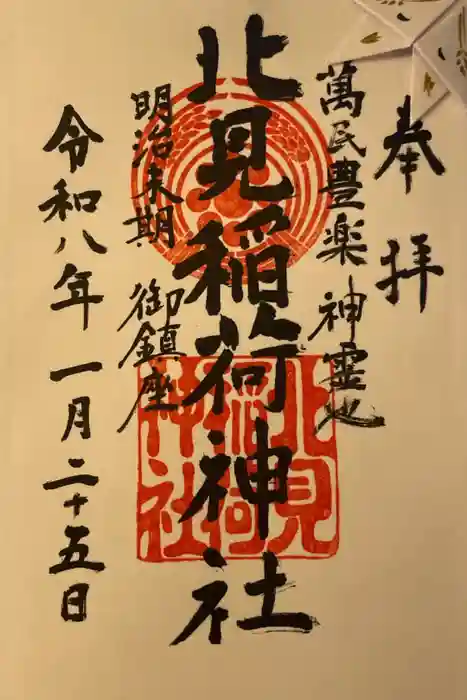 奉拝
萬民豊楽 神霊地
北見稲荷神社
明治末期 御鎮座
令和八年 一月二十五日
北見
稲荷
神社